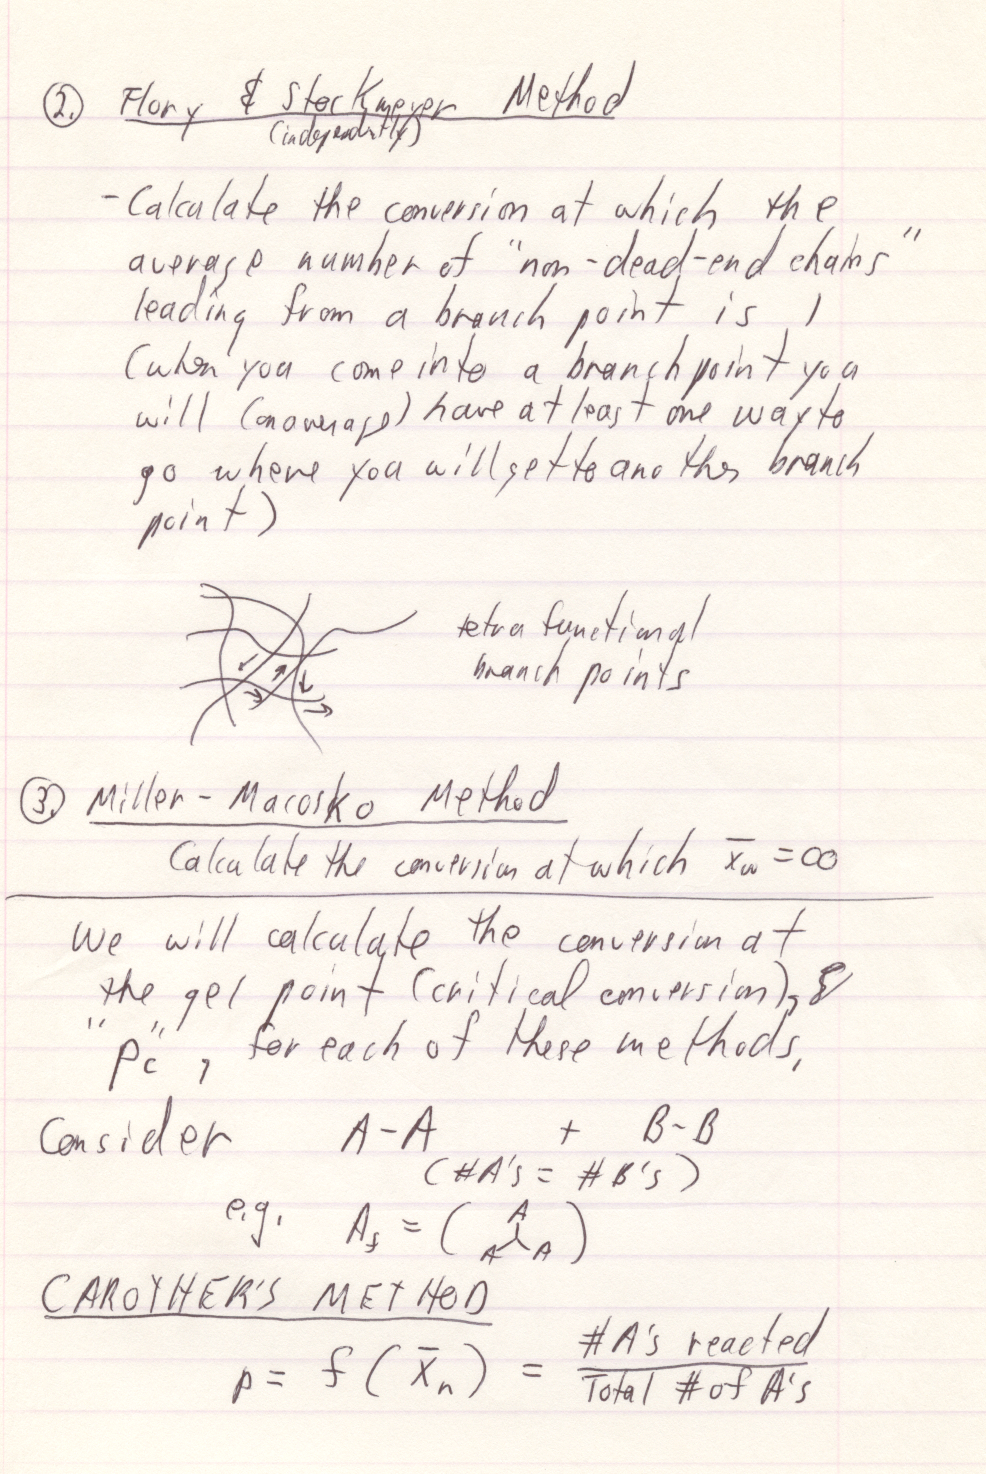 2. Flory & Stockmeyer Method
(independently)
- Calculate the conversion at which the
average number of "non-dead-end chains"
leading from a branch point is 1
(when you come into a branch point you
will (on average) have at least one way to
go where you will get to another branch
point)
tetra functional
branch points
3. Miller - Macosko Method
Calculate the conversion at which x̄w = ∞
We will calculate the conversion at
the gel point (critical conversion), &
"Pc", for each of these methods,
Consider A-A + B-B
(#A's = #B's)
e.g. Af = ( A
A A )
CAROTHER'S METHOD
p = f(x̄n) = #A's reacted
Total # of A's